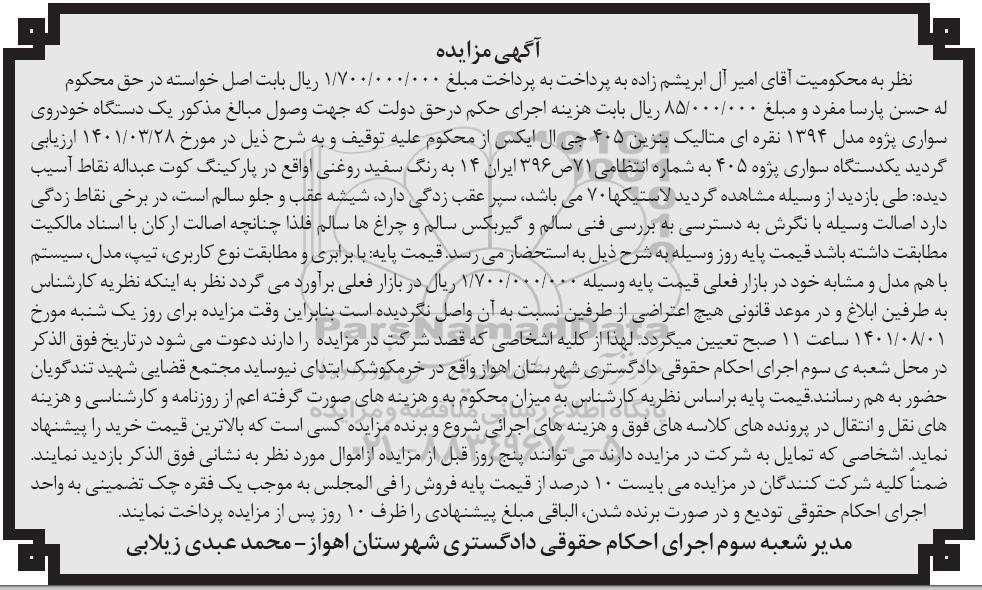 آگهی مزایده
نظر به محکومیت آقای امیر آل ابریشم زاده به پرداخت به پرداخت مبلغ ۱/۷۰۰/۰۰۰/۰۰۰ ریال بابت اصل خواسته در حق محکوم
له حسن پارسا مفرد و مبلغ ۸۵/۰۰۰/۰۰۰ ریال بابت هزینه اجرای حکم درحق دولت که جهت وصول مبالغ مذکور یک دستگاه خودروی
سواری پژوه مدل ۱۳۹۴ نقره ای متالیک بنزین ۴۰۵ جی ال ایکس از محکوم علیه توقیف و به شرح ذیل در مورخ ۱۴۰۱/۰۳/۲۸ ارزیابی
گردید یکدستگاه سواری پژوه ۴۰۵ به شماره انتظامی ۷۱ص۳۹۶ ایران ۱۴ به رنگ سفید روغنی اواقع در پارکینگ کوت عبداله نقاط آسیب
دیده: طی بازدید از وسیله مشاهده گردید لاستیکها ۷۰ می باشد، سپر عقب زدگی دارد، شیشه عقب و جلو سالم است، در برخی نقاط زدگی
دارد اصالت وسیله با نگرش به دسترسی به بررسی فنی سالم و گیربکس سالم و چراغ ها سالم فلذا چنانچه اصالت ارکان با اسناد مالکیت
مطابقت داشته باشد قیمت پایه روز وسیله به شرح ذیل به استحضار می رسد. قیمت پایه: با برابری و مطابقت نوع کاربری، تیپ، مدل، سیستم
با هم مدل و مشابه خود در بازار فعلی قیمت پایه وسیله ۱/۷۰۰/۰۰۰/۰۰۰ ریال در بازار فعلی برآورد می گردد نظر به اینکه نظریه کارشناس
به طرفین ابلاغ و در موعد قانونی هیچ اعتراضی از طرفین نسبت به آن واصل نگردیده است بنابراین وقت مزایده برای روز یک شنبه مورخ
۱۴۰۱/۰۸/۰۱ ساعت ۱۱ صبح تعیین میگردد. لهذا از کلیه اشخاصی که قصد شرکت در مزایده را دارند دعوت می شود درتاریخ فوق الذکر
در محل شعبه ی سوم اجرای احکام حقوقی دادگستری شهرستان اهواز واقع در خرمکوشک ابتدای نیوساید مجتمع قضایی شهید تندگویان
حضور به هم رسانند.قیمت پایه براساس نظریه کارشناس به میزان محکوم به و هزینه های صورت گرفته اعم از روزنامه و کارشناسی و هزینه
های نقل و انتقال در پرونده های کلاسه های فوق و هزینه های اجرائی شروع و برنده مزایده کسی است که بالاترین قیمت خرید را پیشنهاد
نماید. اشخاصی که تمایل به شرکت در مزایده دارند می توانند پنج روز قبل از مزایده ازاموال مورد نظر به نشانی فوق الذکر بازدید نمایند.
ضمناً کلیه شرکت کنندگان در مزایده می بایست ۱۰ درصد از قیمت پایه فروش را فی المجلس به موجب یک فقره چک تضمینی به واحد
اجرای احکام حقوقی تودیع و در صورت برنده شدن، الباقی مبلغ پیشنهادی را ظرف ۱۰ روز پس از مزایده پرداخت نمایند.
مدیر شعبه سوم اجرای احکام حقوقی دادگستری شهرستان اهواز - محمد عبدی زیلابی
ParsNamadData
پایگاه اطلاع رسانی مناقصه و مزایده
۰۲۱-۸۸۳۴۹۶۷۰-۵